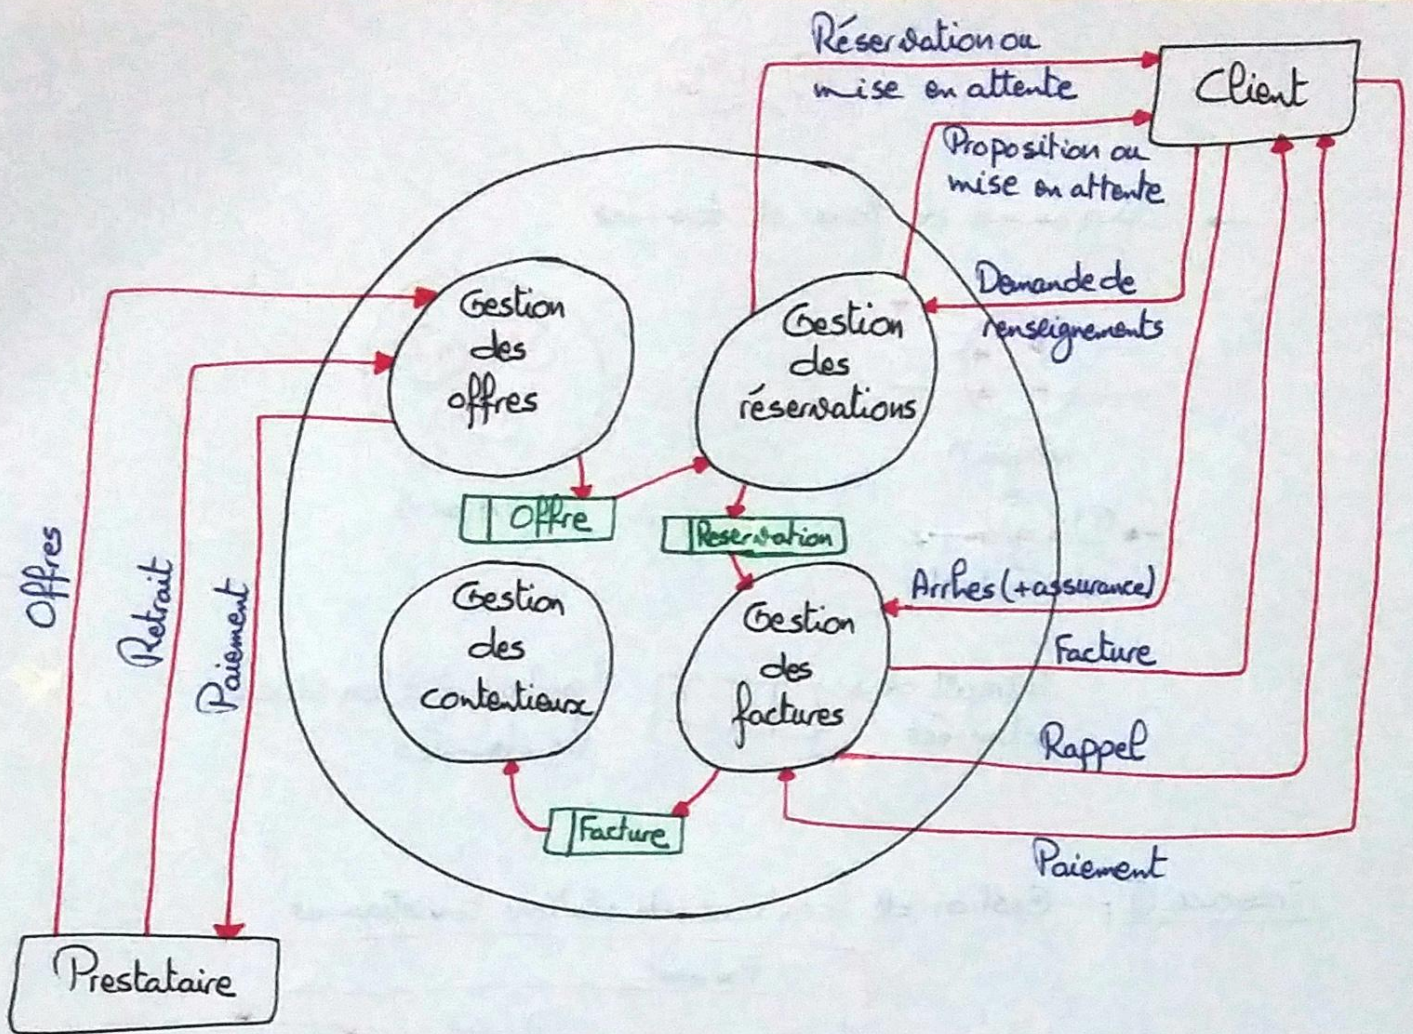 Réservation ou
mise en attente
Client
Proposition ou
mise en attente
Demande de
renseignements
Gestion
des
offres
Gestion
des
réservations
Offre
Reservation
Offres
Retrait
Paiement
Gestion
des
contentieux
Gestion
des
factures
Arrhes (+assurance)
Facture
Rappel
Facture
Paiement
Prestataire